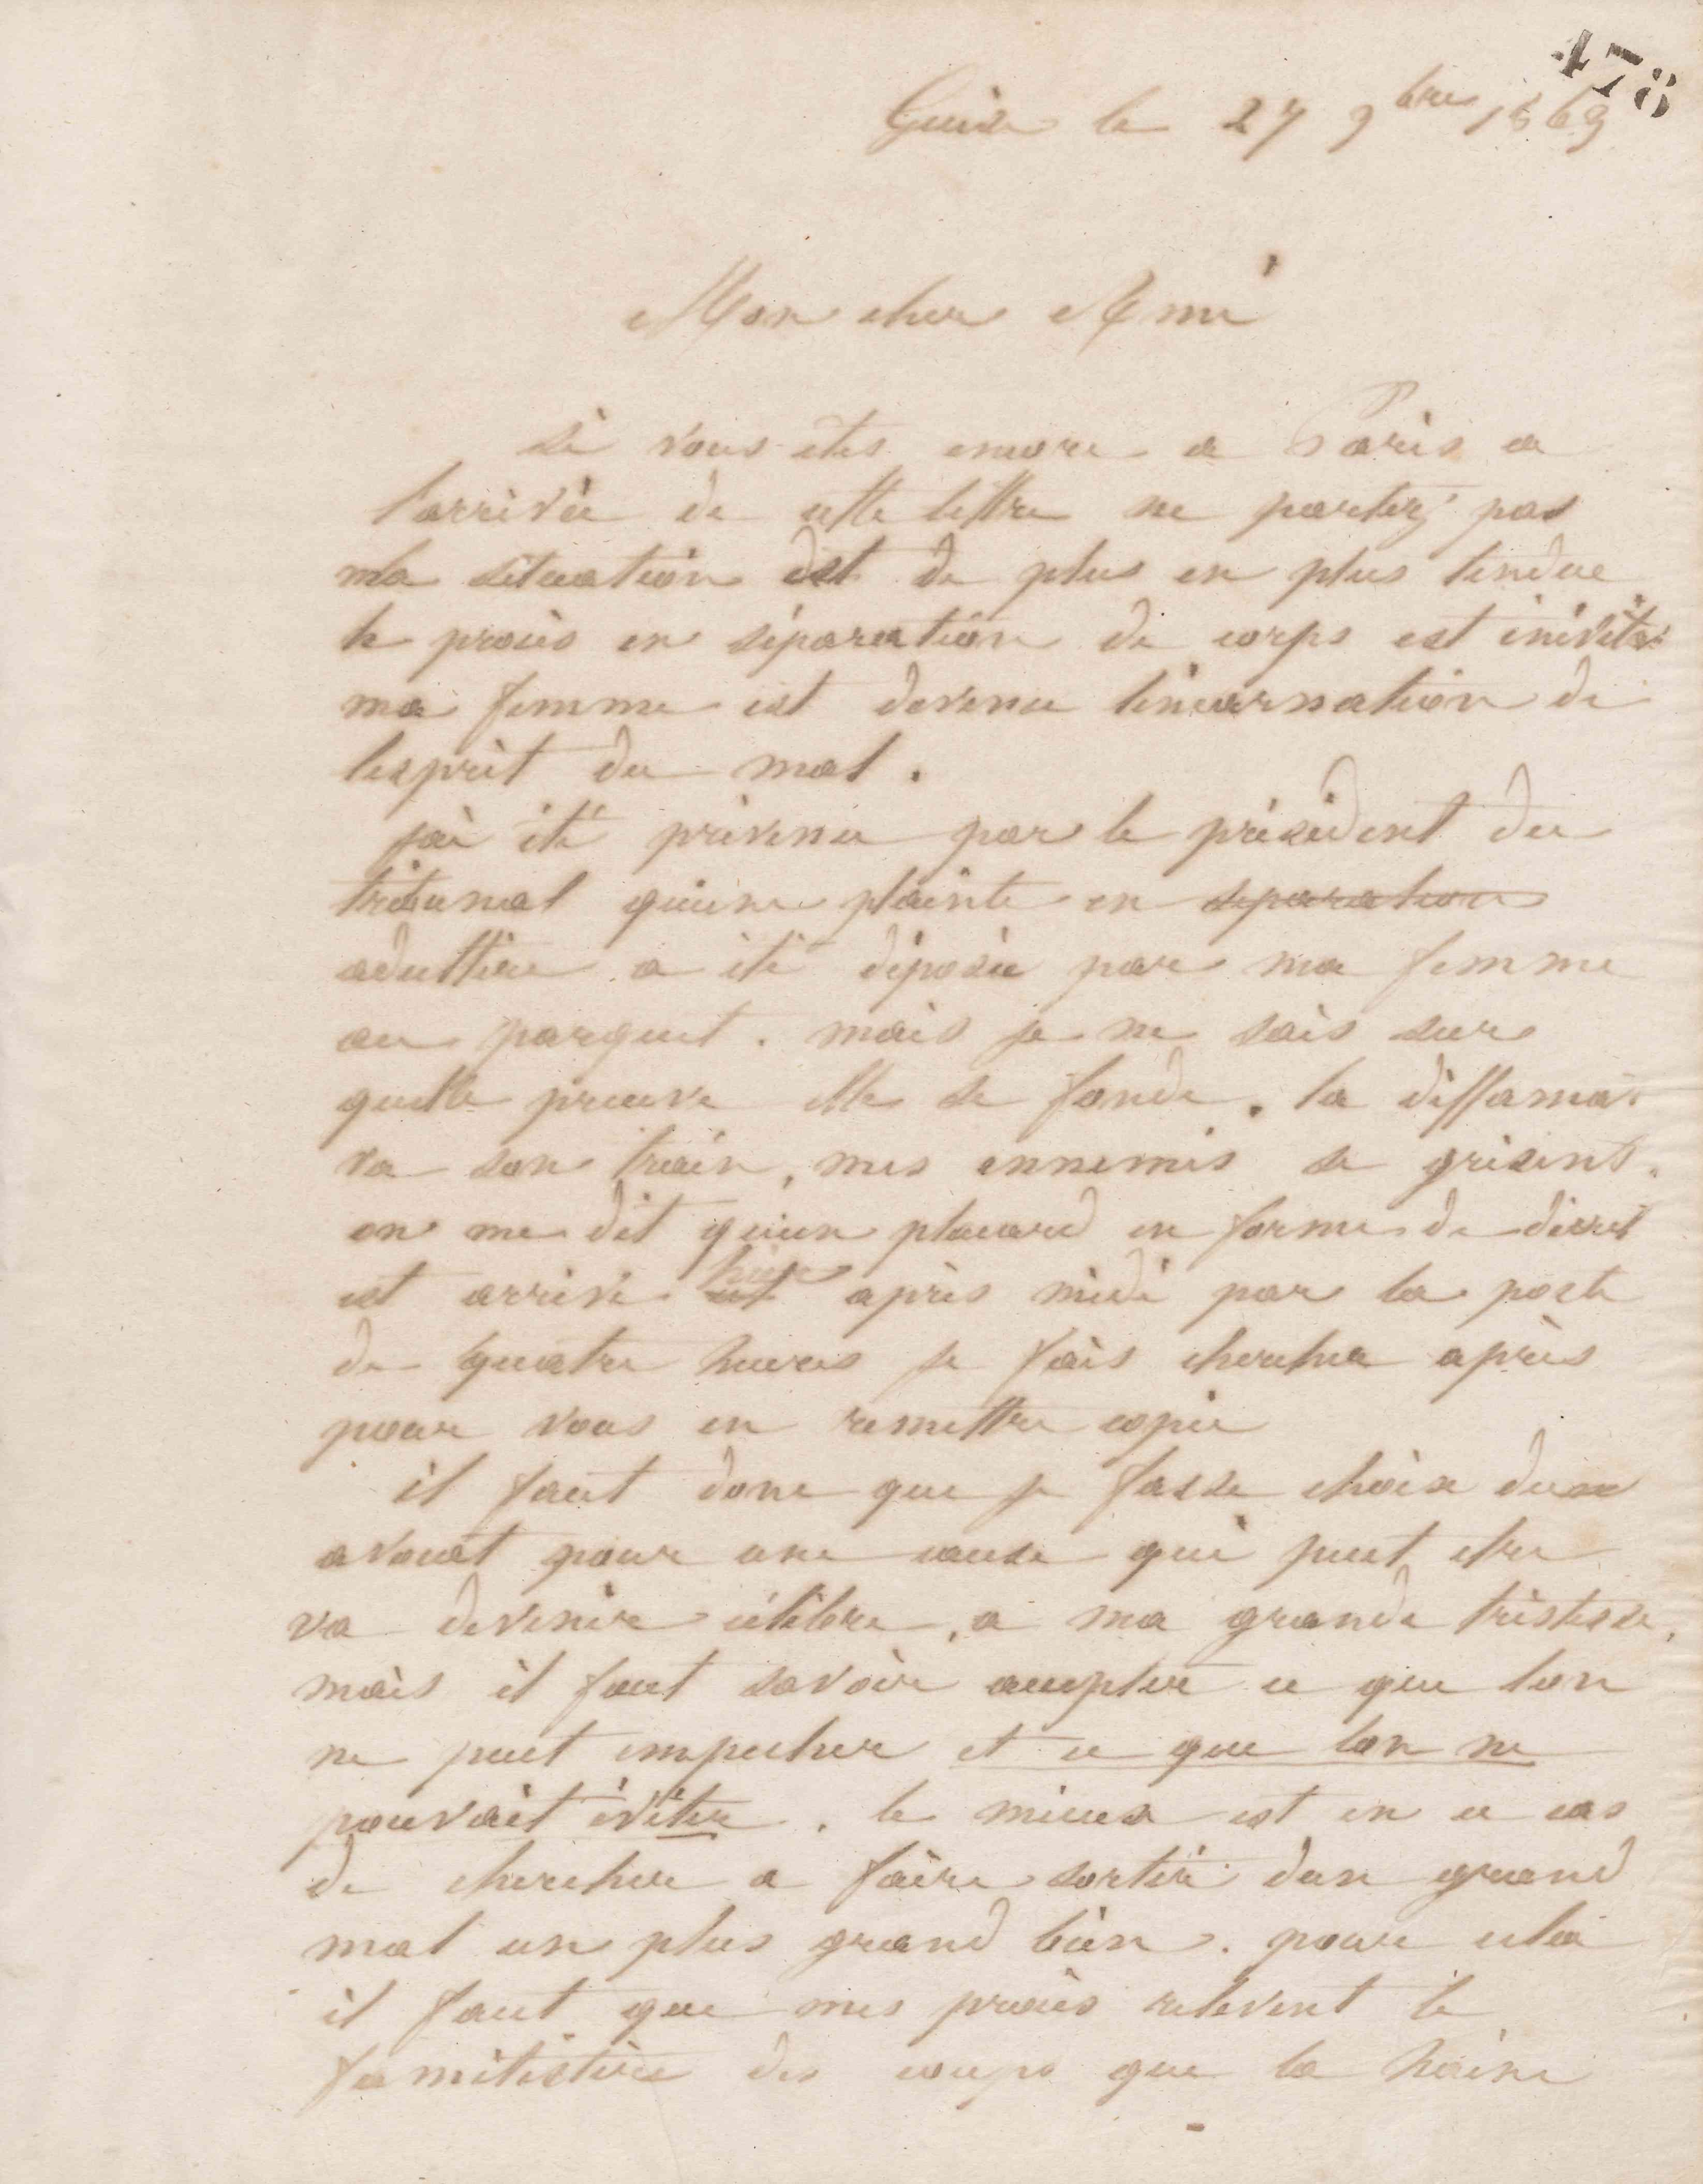 478
Guise le 27 9bre 1869
Mon cher Ami
si vous êtes encore a Paris a
l'arrivée de cette lettre ne partez pas
ma situation est de plus en plus tendue
le procès en séparation de corps est inévita
ma femme est devenue lincarnation de
lesprit du mal.
jai été prévenu par le président du
tribunal quune plainte en separation
adultère a été déposée par ma femme
au parquet. mais je ne sais sur
quelle preuve elle se fonde. la diffama
va son train, mes ennemis se grisent.
on me dit quun placard en forme de décret
est arrivé hier après midi par la poste
de quatre heures je fais chercher après
pour vous en remettre copie
il faut donc que je fasse choix dun
avouat pour une cause qui peut etre
va devenir célèbre, a ma grande tristesse,
mais il faut savoir accepter ce que lon
ne peut empecher et ce que lon ne
pouvait éviter. le mieux est en ce cas
de chercher a faire sortir dun grand
mal un plus grand bien. pour cela
il faut que mes procès relevent le
familistère des coups que la haine